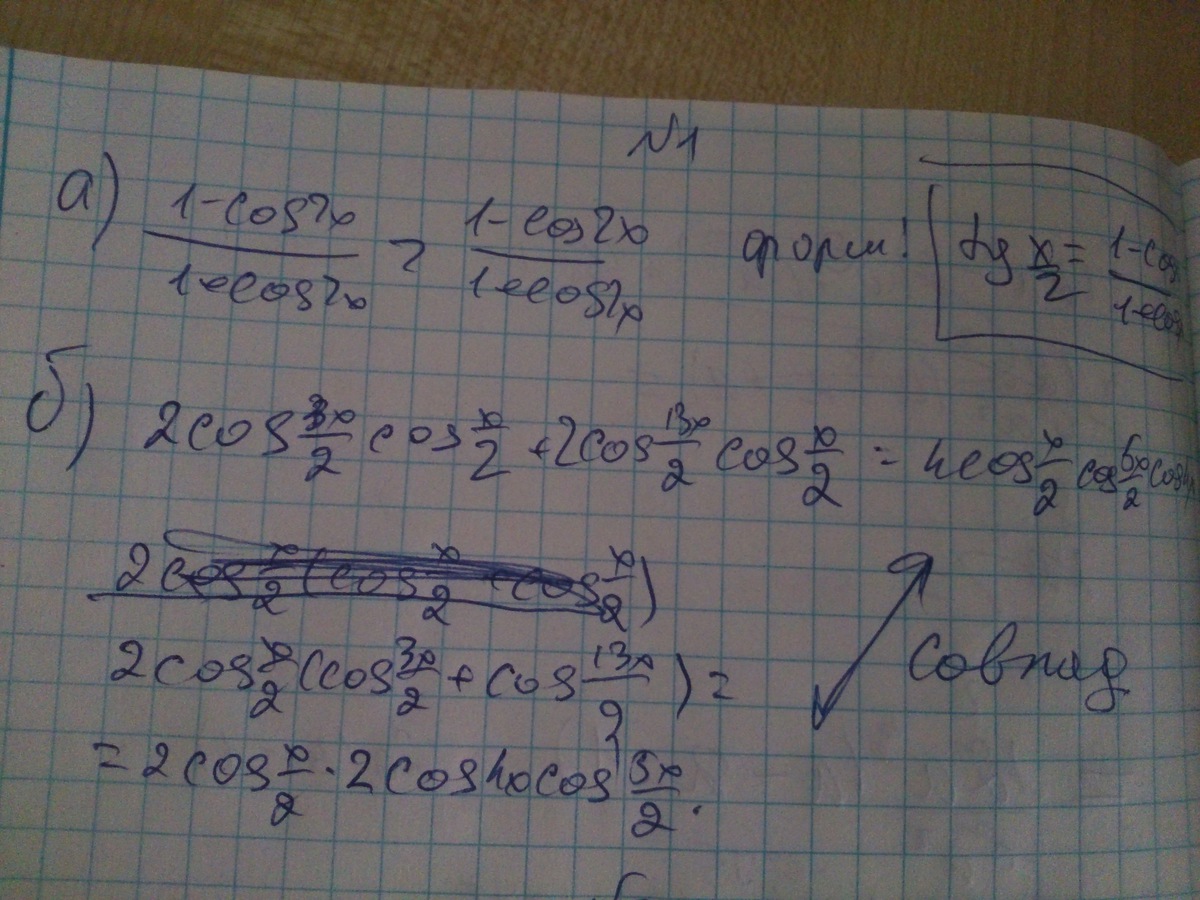 №1
а) 1-cos2x / 1+cos2x = 1-cos2x / 1+cos2x форм! tg x/2 = 1-cos / 1+cos
б) 2cos 3x/2 cos x/2 + 2cos 13x/2 cos x/2 = 4cos x/2 cos 5x/2 cos4x
2cos x/2 (cos x/2 + cos x/2)
2cos x/2 (cos 3x/2 + cos 13x/2) =
совпад
= 2cos x/2 · 2cos4x cos 5x/2.